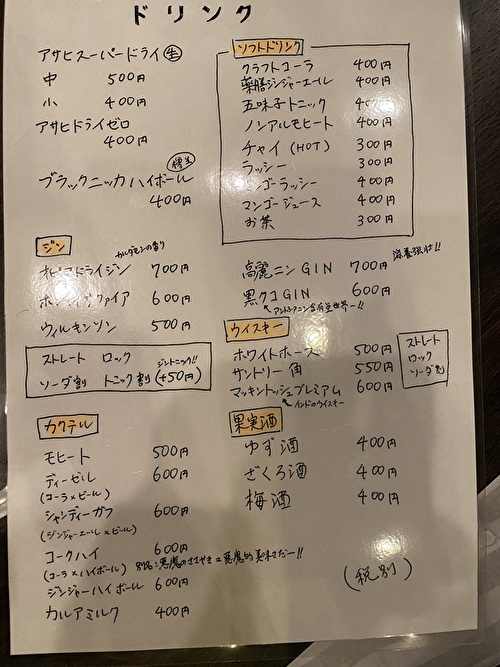 ドリンク
アサヒスーパードライ 生
中 500円
小 400円
アサヒドライゼロ
400円
ブラックニッカハイボール
400円
ソフトドリンク
クラフトコーラ 400円
薬膳ジンジャーエール 400円
五味子トニック 400円
ノンアルモヒート 400円
チャイ(HOT) 300円
ラッシー 300円
マンゴーラッシー 400円
マンゴージュース 400円
お茶 300円
ジン
カルダモンの香り
ドライジン 700円
600円
ウィルキンソン 500円
ストレート ロック ジントニック!!
ソーダ割 トニック割(+50円)
滋養強壮!!
高麗ニンGIN 700円
黒クコGIN 600円
ウイスキー
ホワイトホース 500円
サントリー角 550円
マッキントッシュプレミアム 600円
インドのウイスキー
ストレート
ロック
ソーダ割
カクテル
モヒート 500円
ディーゼル 600円
(コーラ×ビール)
シャンディーガフ 600円
(ジンジャーエール×ビール)
コークハイ 600円
(コーラ×ハイボール) 別名:悪魔のささやき=悪魔的美味さだー!!
ジンジャーハイボール 600円
カルアミルク 400円
果実酒
ゆず酒 400円
ざくろ酒 400円
梅酒 400円
(税別)